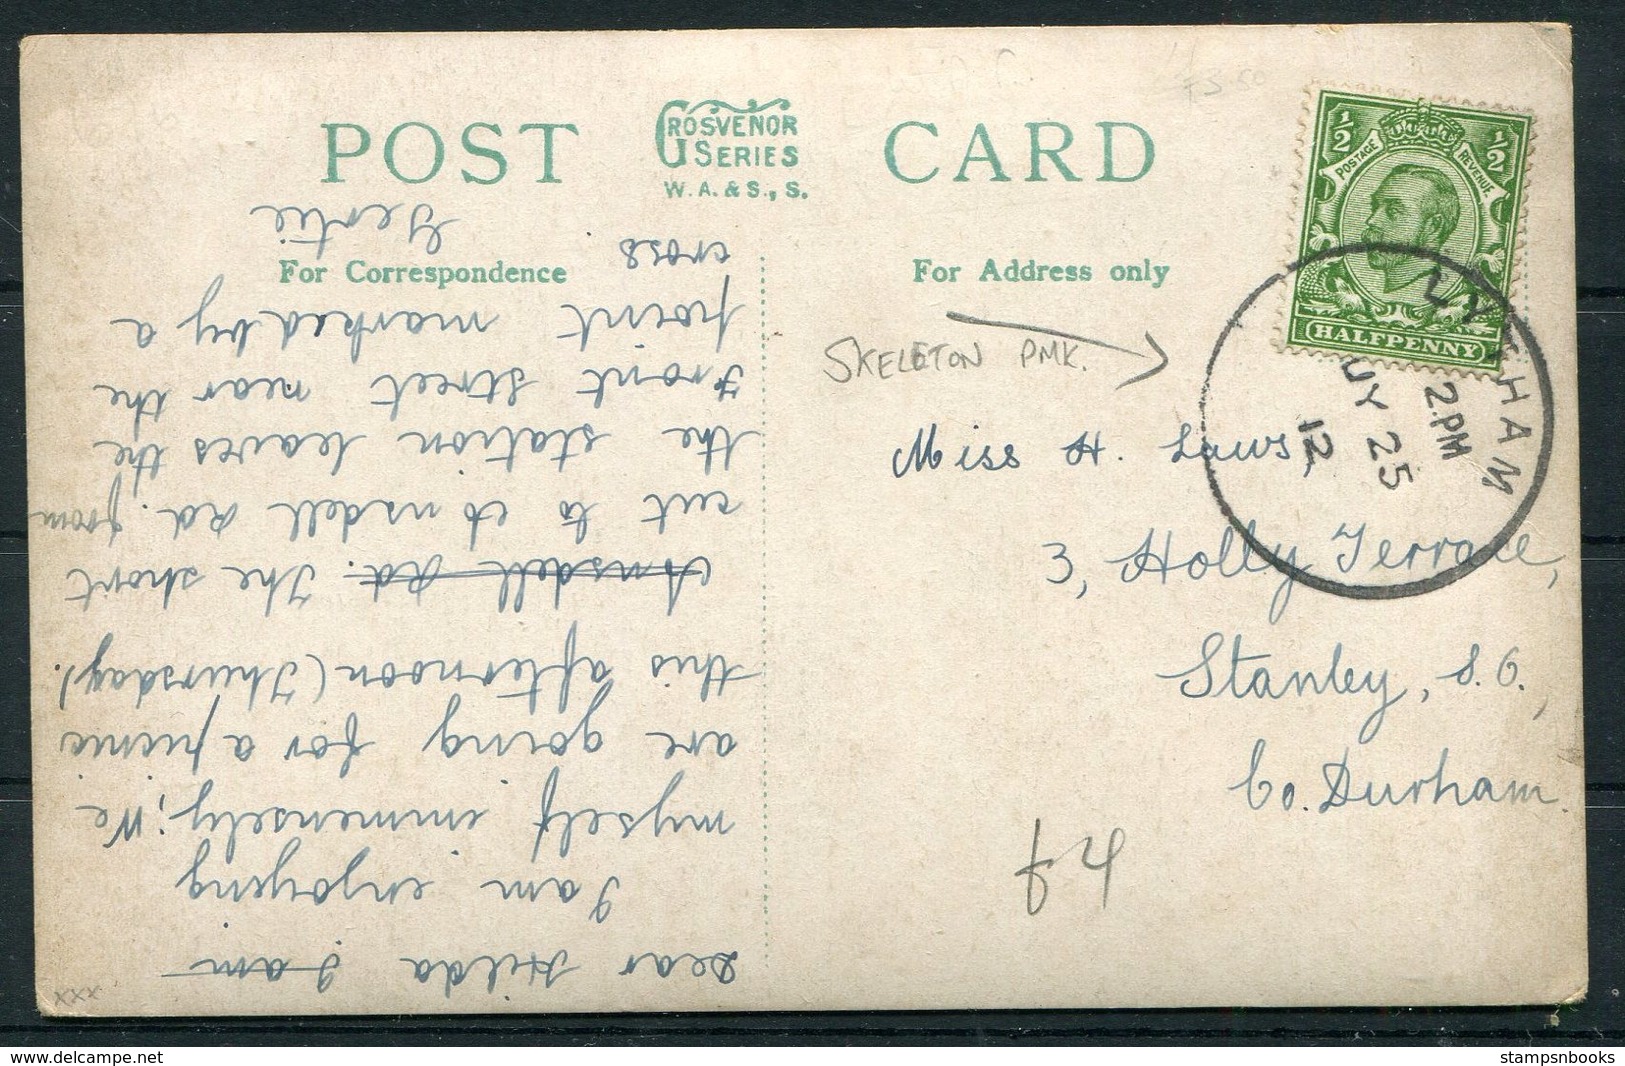 POST CARD
GROSVENOR
SERIES
W. A. & S., S.
For Correspondence
For Address only
½ ½
POSTAGE REVENUE
HALFPENNY
LYTHAM
2.PM
UY 25
12
SKELETON PMK.
Miss H. Laws,
3, Holly Terrace,
Stanley, S.O.,
Co. Durham.
£4
Dear Hilda I am
I am enjoying
myself immensely; We
are going for a picnic
this afternoon (Thursday).
Ansdell Rd. The short
cut to Ansdell Rd. from
the station leaves the
Front Street near the
point marked by a
cross
Gertie
xxx
stampsnbooks